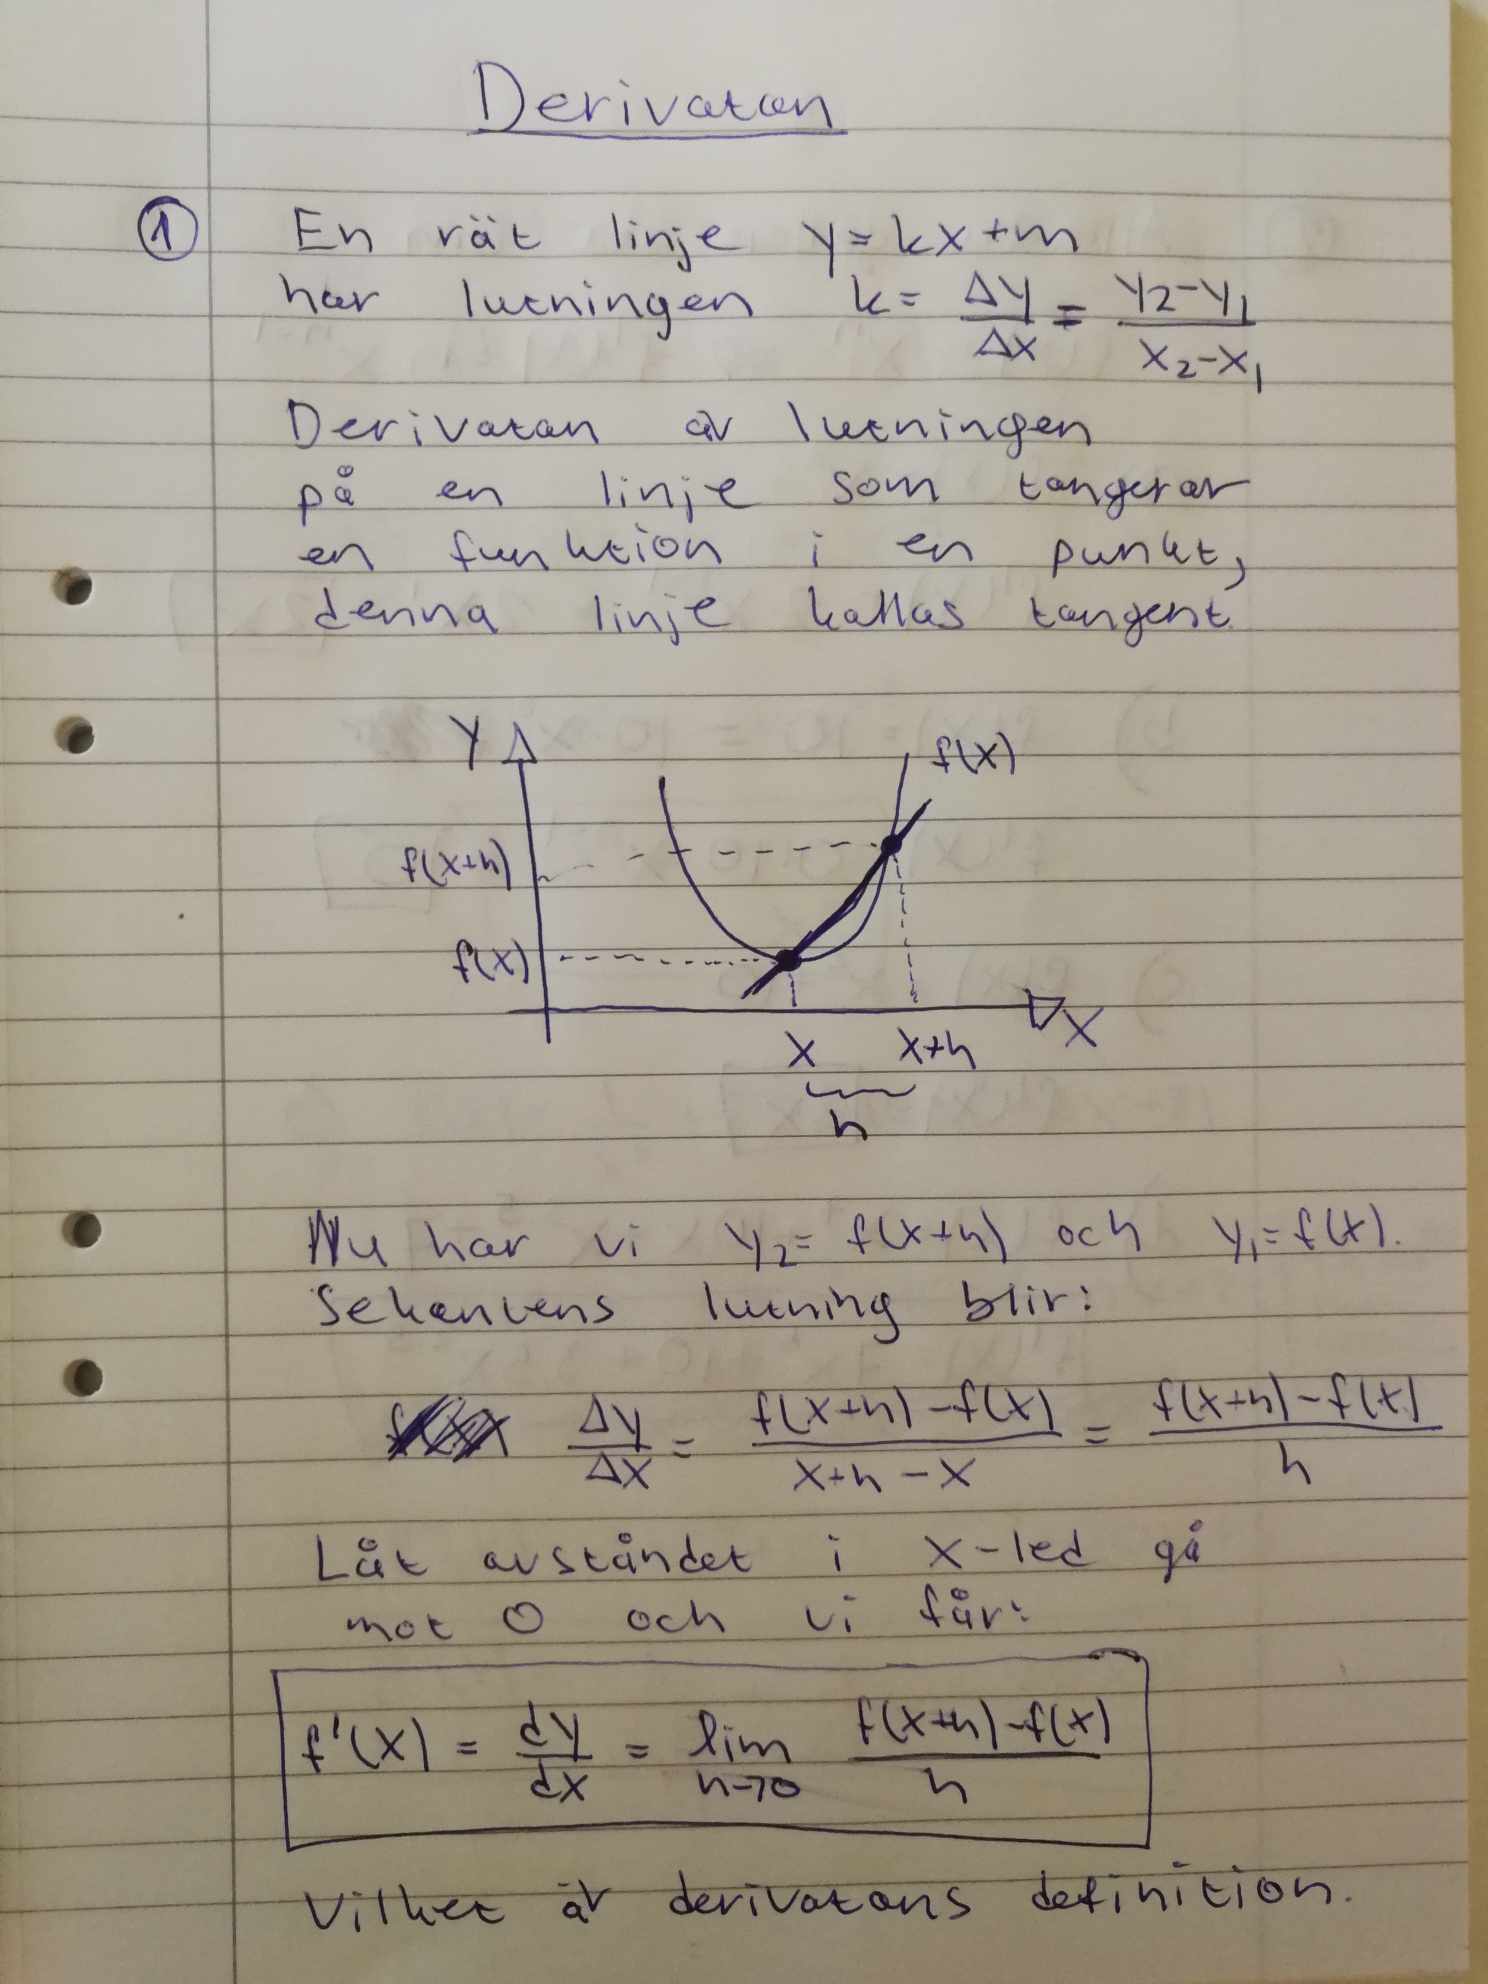 Derivatan
1 En rät linje y = kx + m
har lutningen k = Δy/Δx = y₂-y₁/x₂-x₁
Derivatan är lutningen
på en linje som tangerar
en funktion i en punkt,
denna linje kallas tangent.
y
f(x)
f(x+h)
f(x)
x
x x+h
h
Nu har vi y₂ = f(x+h) och y₁ = f(x).
Sekantens lutning blir:
Δy/Δx = f(x+h)-f(x)/x+h-x = f(x+h)-f(x)/h
Låt avståndet i x-led gå
mot 0 och vi får:
f'(x) = dy/dx = lim h→0 f(x+h)-f(x)/h
Vilket är derivatans definition.